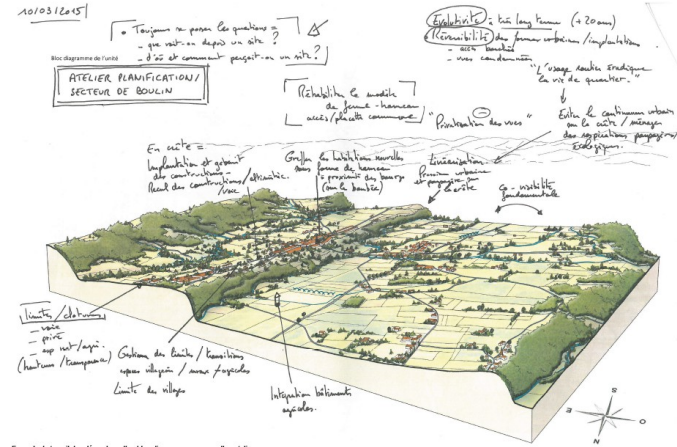 10/03/2015
Toujours se poser les questions =
- que voit-on depuis un site ?
- d'où et comment perçoit-on un site ?
Bloc diagramme de l'unité
ATELIER PLANIFICATION/
SECTEUR DE BOULIN
Evolutivité à très long terme (+ 20 ans)
Réversibilité des formes urbaines/implantations
- accès
- vues condamnées
"L'usage routier éradique
la vie de quartier."
Réhabiliter le modèle
de ferme-hameau
accès/placette commune
"Privatisation des vues"
Eviter le continuum urbain
sur la crête / ménager
des respirations paysagères/
écologiques.
En crête =
Implantation et gabarit
des constructions -
Recul des constructions/
voie
Greffer les habitations nouvelles
sous forme de hameau
à proximité des bourgs
Linéarisation -
Pression urbaine
et paysagère sur
la crête
Co-visibilité
fondamentale
limites/clotures
- voie
- esp nat/agri.
(hauteurs/transparence)
Gestions des limites/transitions
espaces villageois / agricoles
Limite des villages
Intégration bâtiments
agricoles.
S
E
O
N